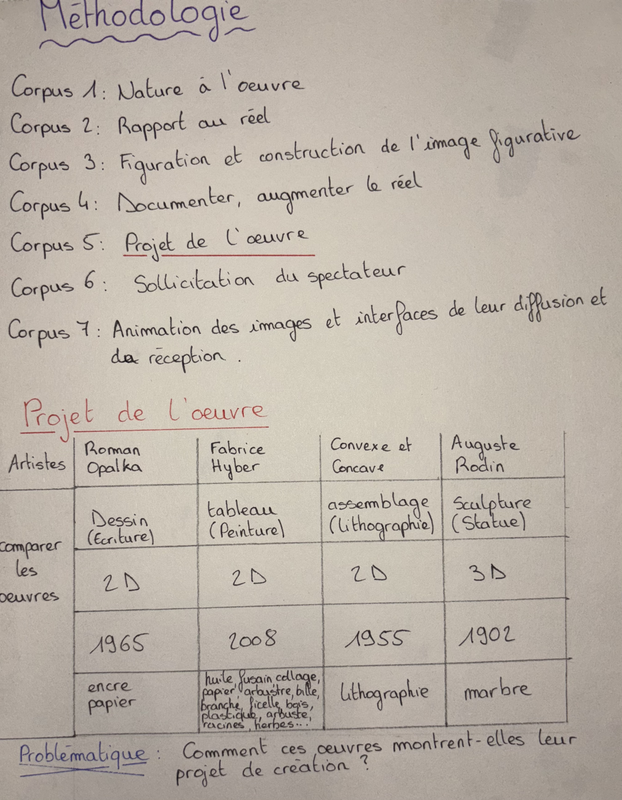 Méthodologie
Corpus 1: Nature à l'oeuvre
Corpus 2: Rapport au réel
Corpus 3: Figuration et construction de l'image figurative
Corpus 4: Documenter, augmenter le réel
Corpus 5: Projet de l'oeuvre
Corpus 6: Sollicitation du spectateur
Corpus 7: Animation des images et interfaces de leur diffusion et
de réception.
Projet de l'oeuvre
Artistes
Roman
Opalka
Fabrice
Hyber
Convexe et
Concave
Auguste
Rodin
comparer
les
oeuvres
Dessin
(Ecriture)
tableau
(Peinture)
assemblage
(Lithographie)
Sculpture
(Statue)
2D
2D
2D
3D
1965
2008
1955
1902
encre
papier
huile, fusain collage,
papier arbustre, bille,
branche, ficelle, bois,
plastique, arbuste,
racines, herbes...
Lithographie
marbre
Problématique: Comment ces oeuvres montrent-elles leur
projet de création ?